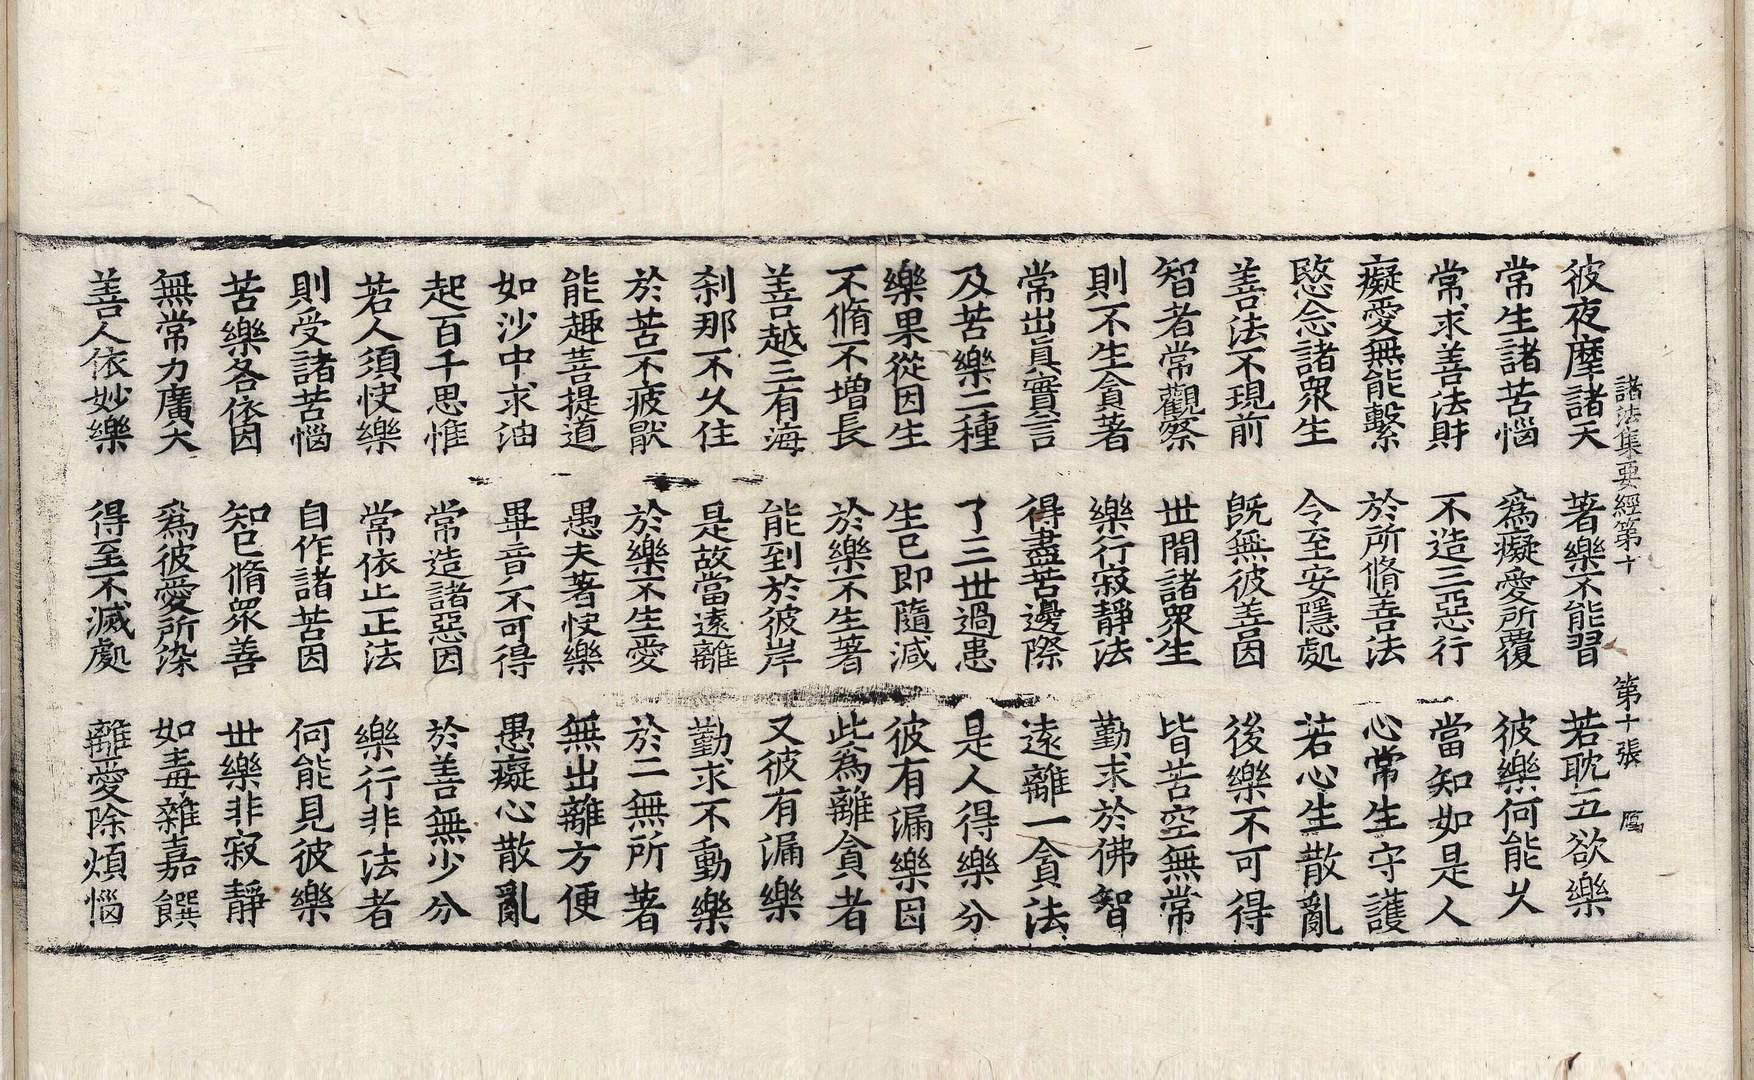 諸法集要經第十　第十張　鳫
彼夜摩諸天　著樂不能習　若耽五欲樂
常生諸苦惱　為癡愛所覆　彼樂何能久
常求善法財　不造三惡行　當知如是人
癡愛無能繫　於所脩善法　心常生守護
愍念諸衆生　令至安隱處　若心生散亂
善法不現前　旣無彼善因　後樂不可得
智者常觀察　世間諸衆生　皆苦空無常
則不生貪著　樂行寂靜法　勤求於佛智
常出眞實言　得盡苦邊際　遠離一貪法
及苦樂二種　了三世過患　是人得樂分
樂果從因生　生已即隨滅　彼有漏樂因
不脩不增長　於樂不生著　此為離貪者
善越三有海　能到於彼岸　又彼有漏樂
刹那不久住　是故當遠離　勤求不動樂
於苦不疲猒　於樂不生愛　於二無所著
能趣菩提道　愚夫著快樂　無出離方便
如沙中求油　畢竟不可得　愚癡心散亂
起百千思惟　常造諸惡因　於善無少分
若人須快樂　常依止正法　樂行非法者
則受諸苦惱　自作諸苦因　何能見彼樂
苦樂各依因　知已脩衆善　世樂非寂靜
無常力廣大　為彼愛所染　如毒雜嘉饌
善人依妙樂　得至不滅處　離愛除煩惱